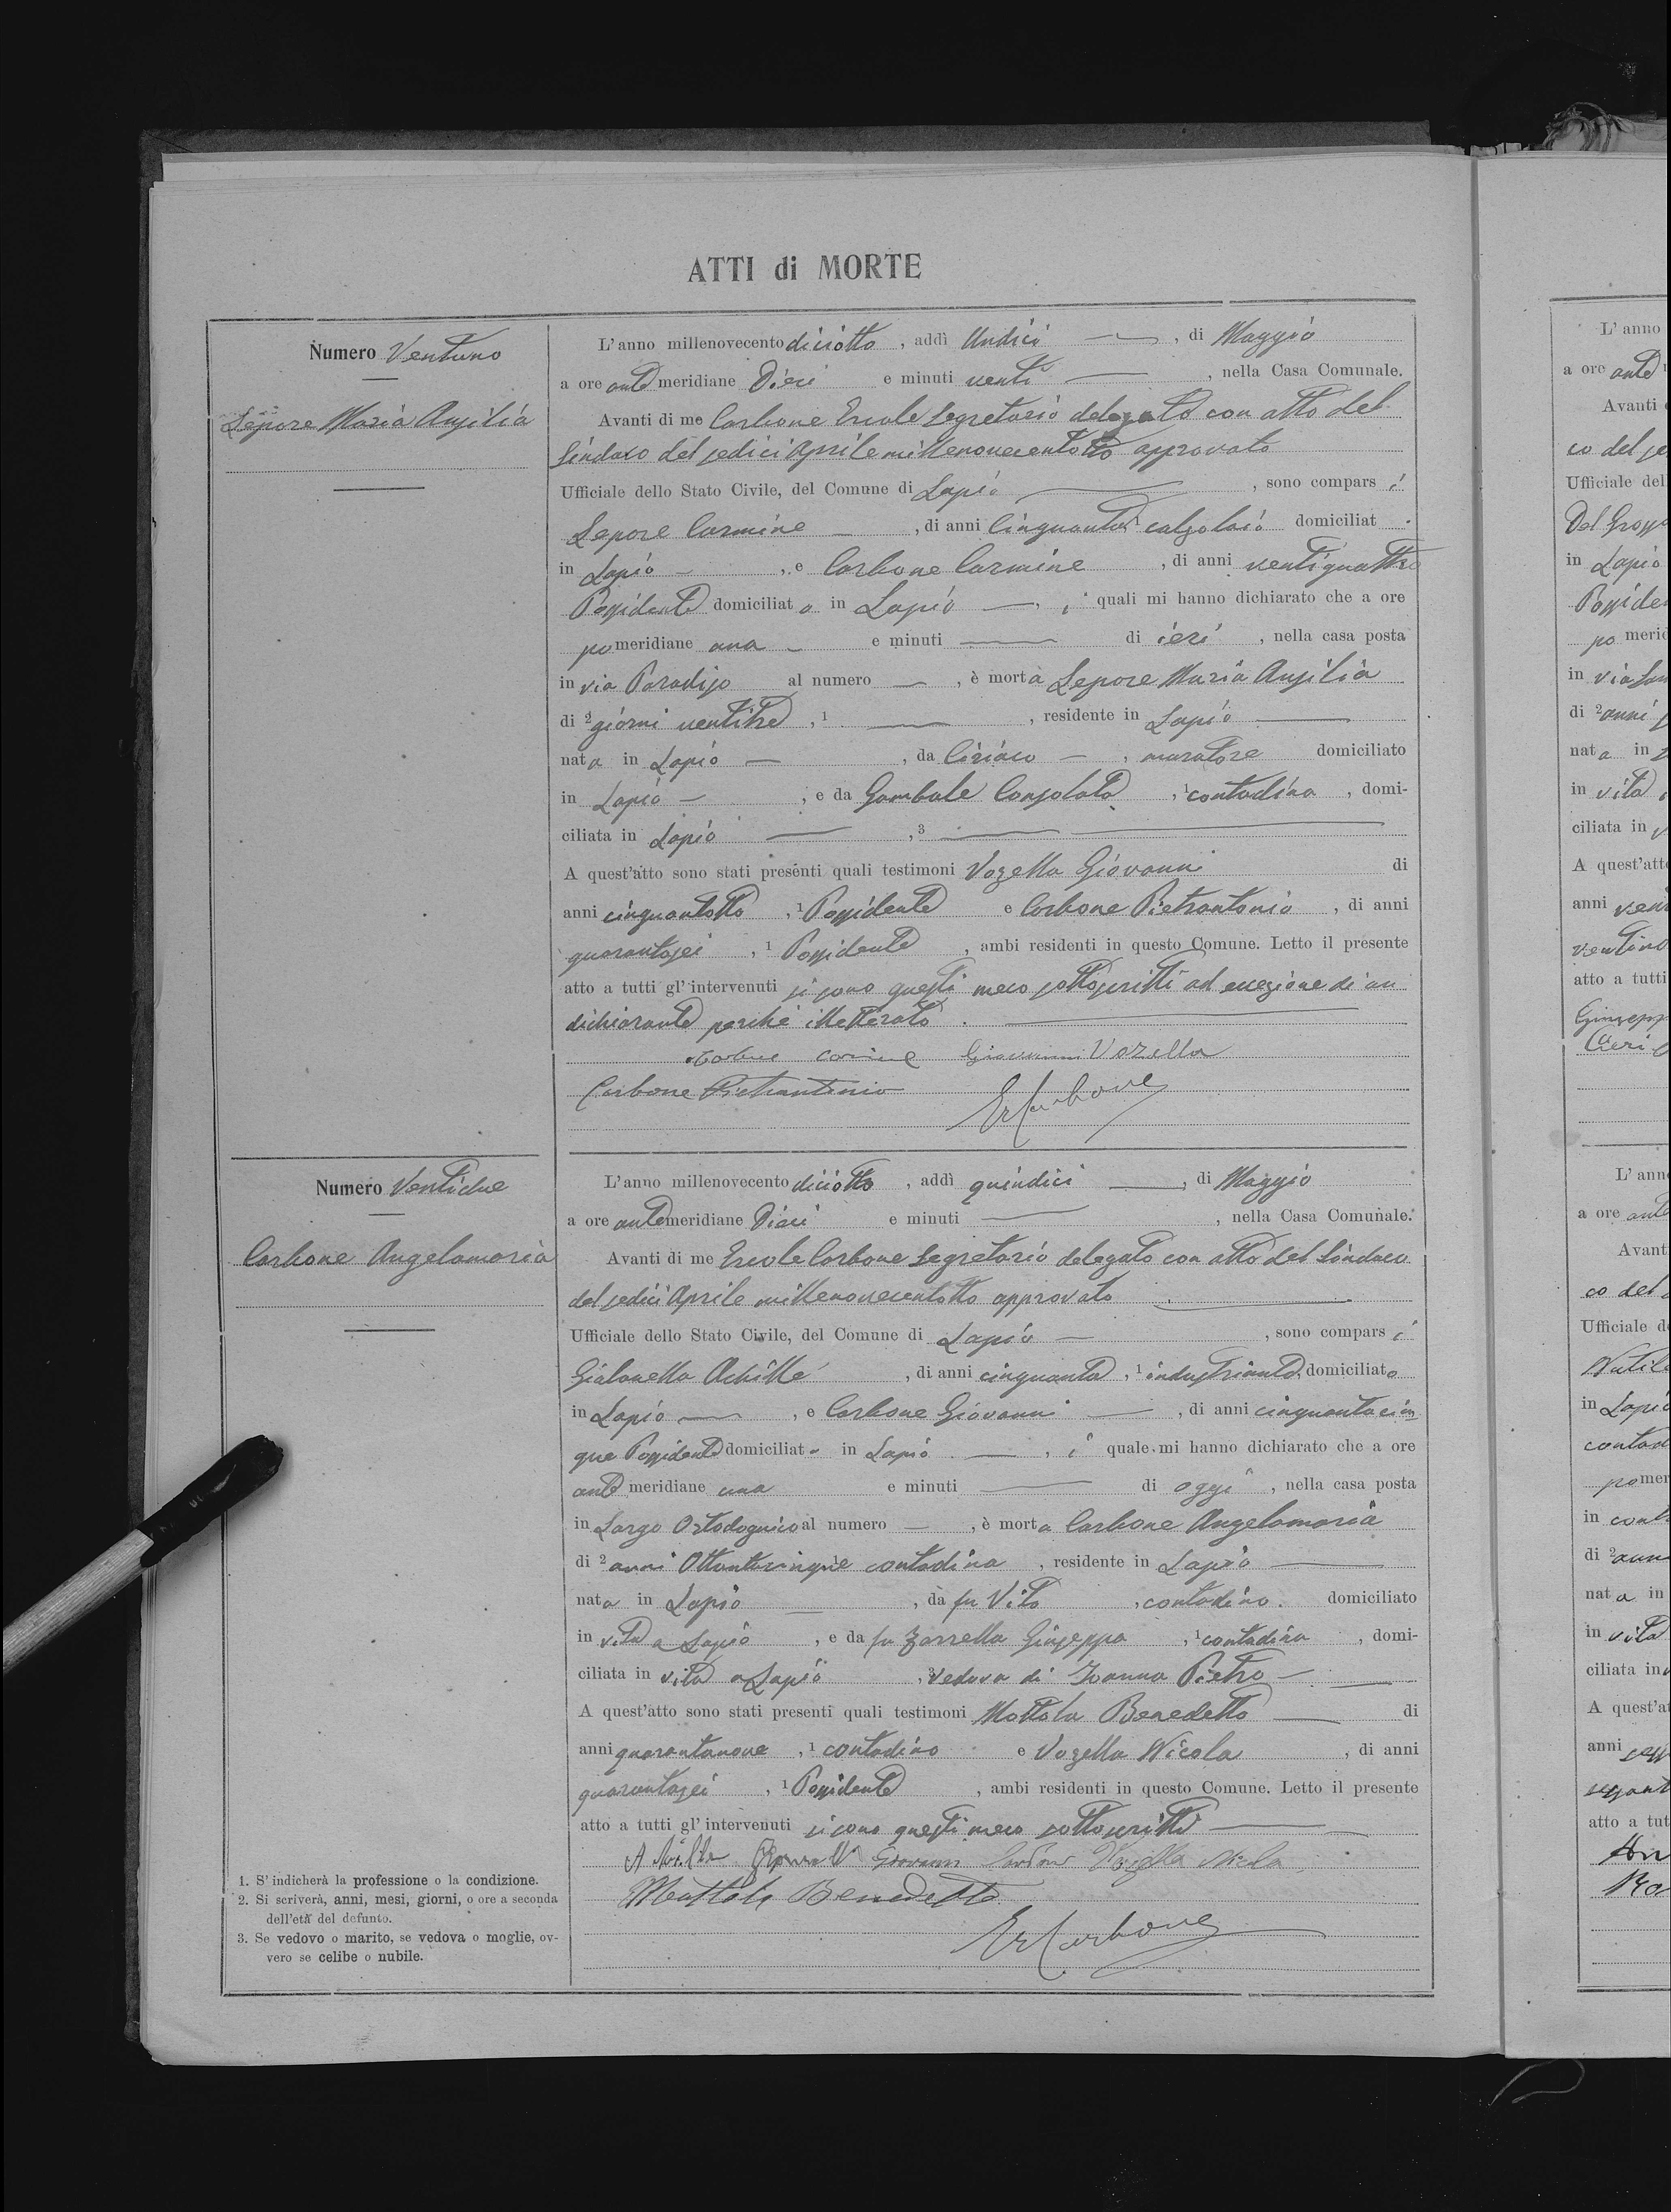 ATTI di MORTE
Numero Ventuno
Lepore Maria Ansilia
L'anno millenovecento diciotto, addì Undici, di Maggio
a ore antemeridiane Dieci e minuti venti, nella Casa Comunale.
Avanti di me Carbone Ercole Segretario delegato con atto del
Sindaco del sedici Aprile millenovecentotto approvato
Ufficiale dello Stato Civile, del Comune di Lapio, sono comparsi
Lepore Carmine, di anni Cinquanta calzolaio domiciliat
in Lapio, e Carbone Carmine, di anni ventiquattro
Possidente domiciliato in Lapio, i quali mi hanno dichiarato che a ore
pomeridiane una e minuti — di ieri, nella casa posta
in via Paradiso al numero —, è morta Lepore Maria Ansilia
di 2 giorni ventitre, 1 —, residente in Lapio
nata in Lapio, da Ciriaco, muratore domiciliato
in Lapio, e da Gambale Consolata, 1 contadina, domi-
ciliata in Lapio, 3 —
A quest'atto sono stati presenti quali testimoni Vozella Giovanni di
anni cinquantotto, 1 Possidente e Carbone Pietrantonio, di anni
quarantasei, 1 Possidente, ambi residenti in questo Comune. Letto il presente
atto a tutti gl'intervenuti si sono questi meco sottoscritti ad eccezione di un
dichiarante perché illetterato.
Carbone Carmine Giovanni Vozella
Carbone Pietrantonio
Er Carbone
Numero Ventidue
Carbone Angelamaria
L'anno millenovecento diciotto, addì quindici, di Maggio
a ore antemeridiane Dieci e minuti —, nella Casa Comunale.
Avanti di me Ercole Carbone Segretario delegato con atto del Sindaco
del sedici Aprile millenovecentotto approvato
Ufficiale dello Stato Civile, del Comune di Lapio, sono comparsi
Gialanella Achille, di anni cinquanta, 1 industriante domiciliato
in Lapio, e Carbone Giovanni, di anni cinquantacin
que Possidente domiciliato in Lapio, i quale mi hanno dichiarato che a ore
antemeridiane una e minuti — di oggi, nella casa posta
in Largo al numero —, è morta Carbone Angelamaria
di 2 anni Ottantacinque contadina, residente in Lapio
nata in Lapio, da fu Vito, contadino domiciliato
in vita a Lapio, e da fu Zarrella Giuseppa, 1 contadina, domi-
ciliata in vita a Lapio, 3 vedova di Ioanna Pietro
A quest'atto sono stati presenti quali testimoni Mottola Benedetto di
anni quarantanove, 1 contadino e Vozella Nicola, di anni
quarantasei, 1 Possidente, ambi residenti in questo Comune. Letto il presente
atto a tutti gl'intervenuti si sono questi meco sottoscritti
Achille Giovanni Carbone Vozella Nicola
Mottola Benedetto
Er Carbone
1. S'indicherà la professione o la condizione.
2. Si scriverà, anni, mesi, giorni, o ore a seconda
dell'età del defunto.
3. Se vedovo o marito, se vedova o moglie, ov-
vero se celibe o nubile.
L'anno
a ore ante
Avanti
co del se
Ufficiale del
Del Grosso
in Lapio
Possiden
po merid
in via San
di 2 anni
nata in
in vita
ciliata in
A quest'atto
anni
atto a tutti
Giusepp
L'anno
a ore ante
Avanti
co del
Ufficiale d
in Lapio
contad
po mer
in cont
di 2 anni
nata in
in vita
ciliata in
A quest'at
anni
atto a tut